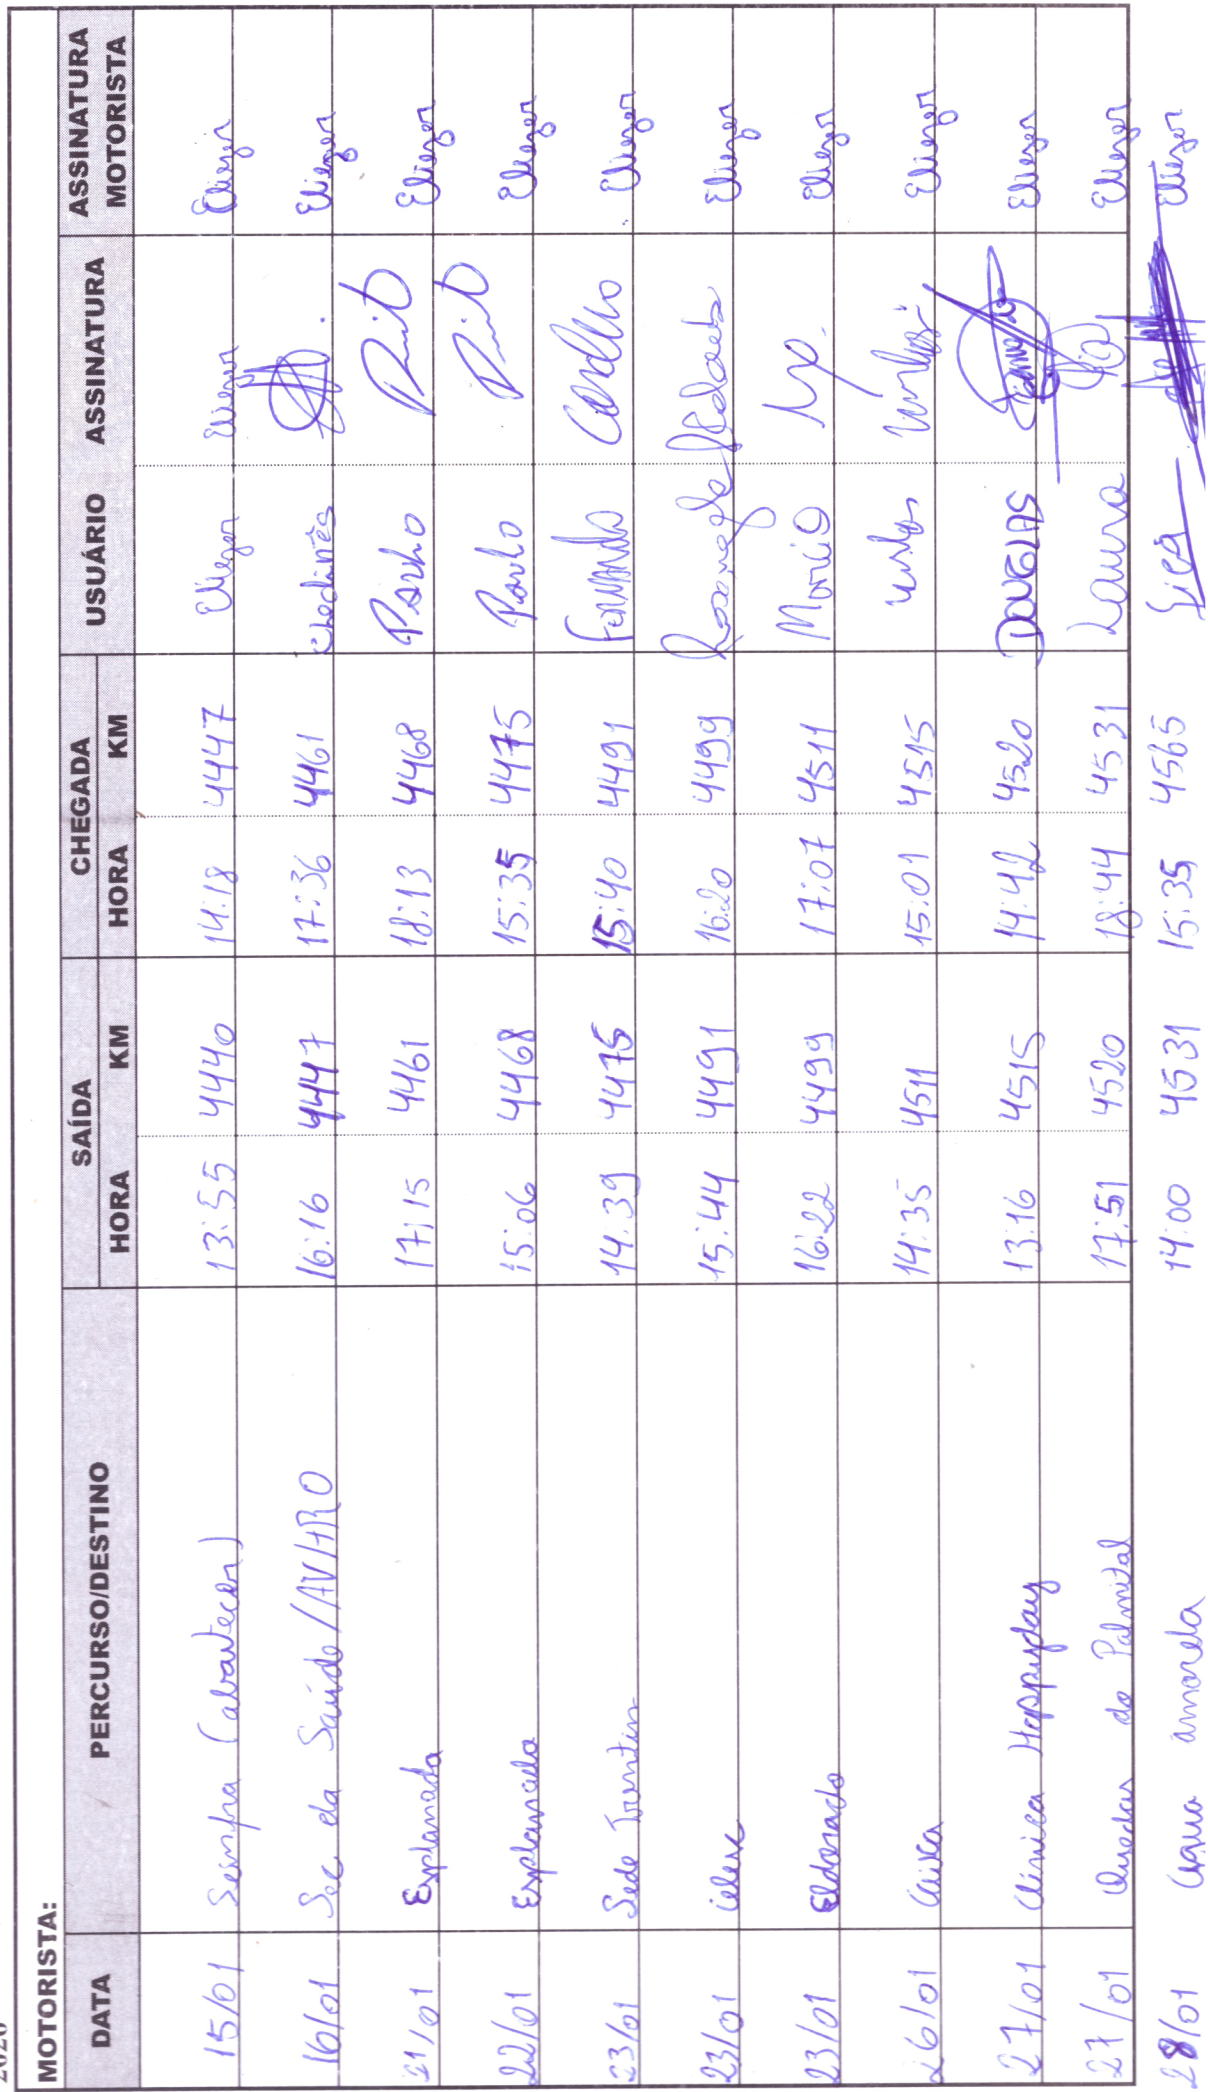 2026
MOTORISTA:
DATA PERCURSO/DESTINO SAÍDA CHEGADA USUÁRIO ASSINATURA ASSINATURA MOTORISTA
HORA KM HORA KM
15/01 Seinfra (abastecer) 13:55 4440 14:18 4447 Eliezer Eliezer Eliezer
16/01 Sec da Saúde/AV/HRO 16:16 4447 17:36 4461 Eliezer
21/01 Esplanada 17:15 4461 18:13 4468 Eliezer
22/01 Esplanada 15:06 4468 15:35 4475 Eliezer
23/01 Sede Trentin 14:39 4475 15:40 4491 Fernando Eliezer
23/01 Celesc 15:44 4491 16:20 4499 Rosangela Eliezer
23/01 Eldorado 16:22 4499 17:07 4511 Eliezer
26/01 14:35 4511 15:01 4515 Eliezer
27/01 Clinica Happyday 13:16 4515 14:42 4520 DOUGLAS Eliezer
27/01 Quedas do Palmital 17:51 4520 18:44 4531 Laura Eliezer
28/01 Agua amarela 14:00 4531 15:35 4565 Eliezer